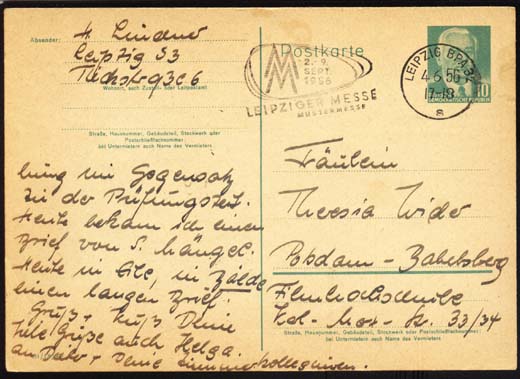 Absender: H. Lindner
Leipzig S3
Wohnort, auch Zustell- oder Leitpostamt
Straße, Hausnummer, Gebäudeteil, Stockwerk oder
Postschließfachnummer;
bei Untermietern auch Name des Vermieters
Postkarte
2.-9.
SEPT.
1956
LEIPZIGER MESSE
MUSTERMESSE
LEIPZIG BPA 32
4.6.56
17-18
s
10
Fräulein
Theresia Wider
Potsdam-Babelsberg
Filmhochschule
Straße, Hausnummer, Gebäudeteil, Stockwerk oder Postschließfachnummer;
bei Untermietern auch Name des Vermieters
33/34
bung im Gegensatz
zu der Prüfungszeit.
Heute bekam ich einen
Brief von S. Mängel.
Heute in Eile, in Bälde
einen langen Brief.
Gruß + Kuß Deine
Helga.
Viele Grüße auch
an + Deine Zimmerkolleginnen.